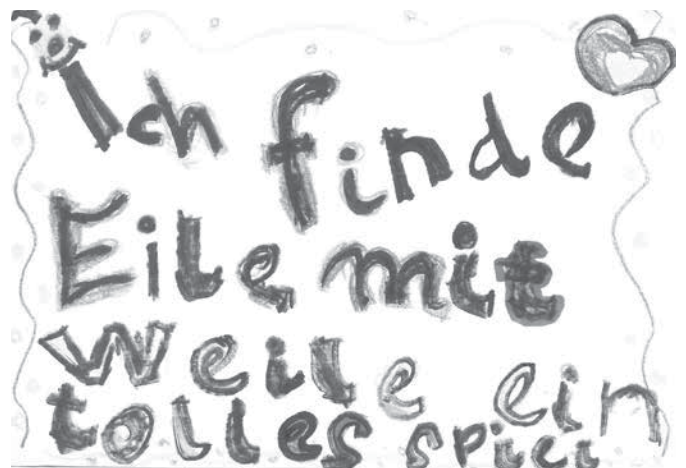 Ich finde
Eile mit
Weile ein
tolles spiel